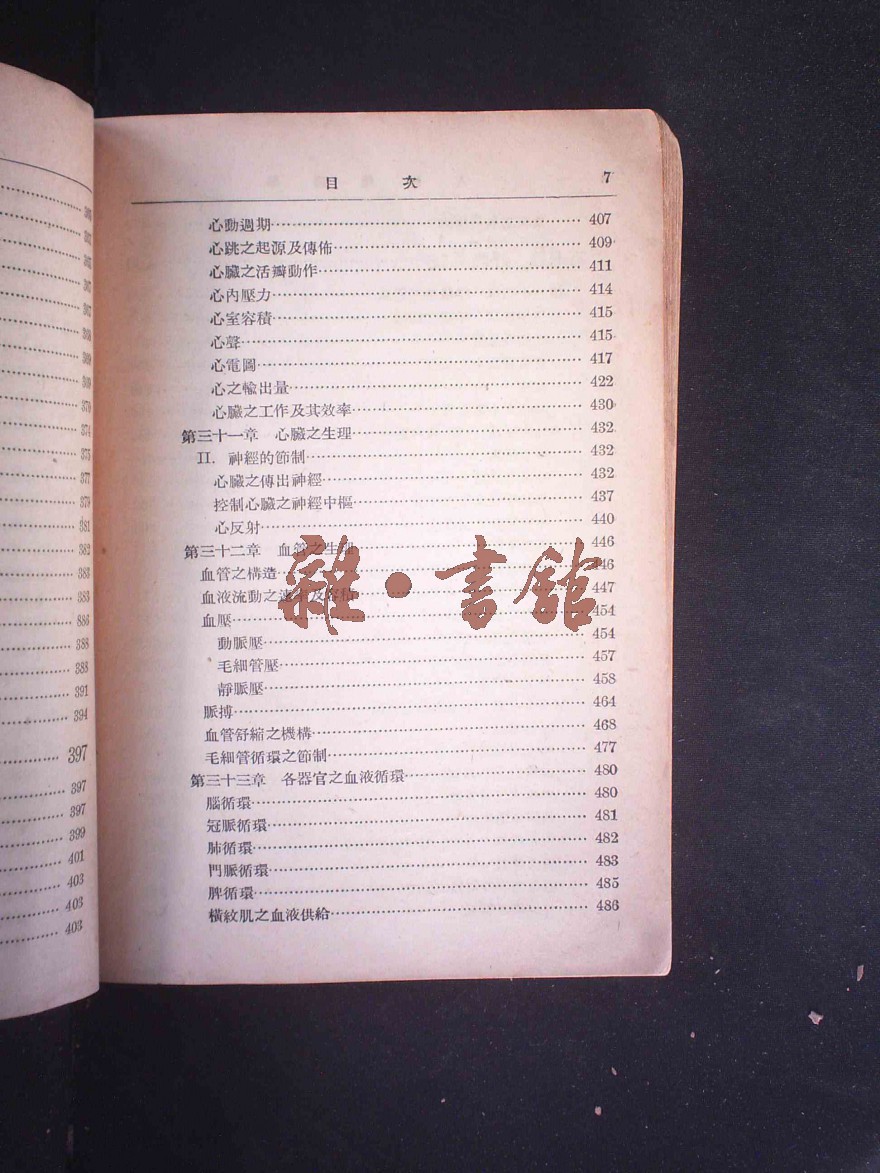 目 次 7
心動週期 407
心跳之起源及傳佈 409
心臟之活瓣動作 411
心內壓力 414
心室容積 415
心聲 415
心電圖 417
心之輸出量 422
心臟之工作及其效率 430
第三十一章 心臟之生理 432
II. 神經的節制 432
心臟之傳出神經 432
控制心臟之神經中樞 437
心反射 440
第三十二章 血管之生理 446
血管之構造 446
血液流動之速率及容積 447
血壓 454
動脈壓 454
毛細管壓 457
靜脈壓 458
脈搏 464
血管舒縮之機構 468
毛細管循環之節制 477
第三十三章 各器官之血液循環 480
腦循環 480
冠脈循環 481
肺循環 482
門脈循環 483
脾循環 485
橫紋肌之血液供給 486
雜·書館
370
374
375
377
379
381
382
383
383
386
388
388
391
394
397
397
397
399
401
403
403
403